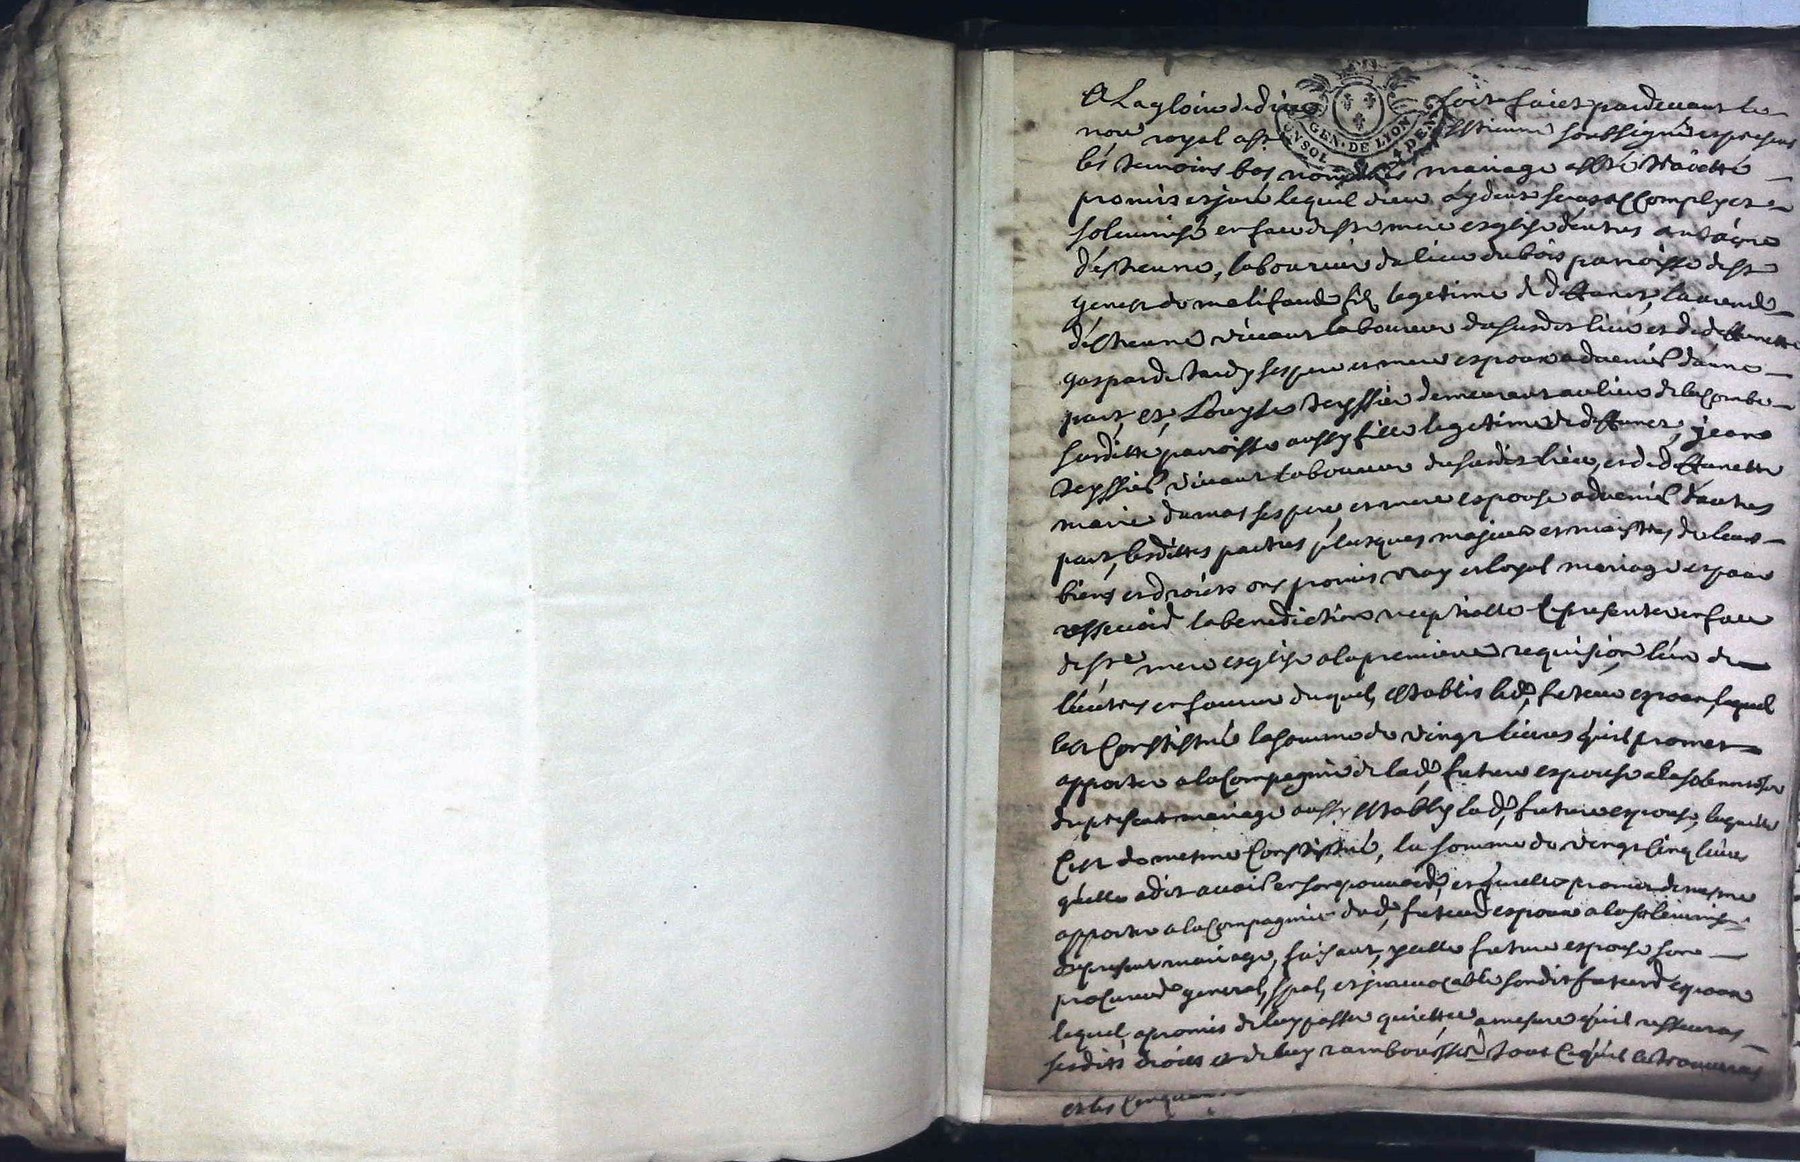 A La gloire de dieu soit faict pardevant le
nore royal a St Estienne soubsigné et presens
les temoins bas nommes mariage a esté traicté
promis et juré lequel dieu aydant seras accomply et
solemnisé en face de ste mere esglise d'entres
d'estienne, laboureur du lieu du bois parroisse de st
genest de malifaud fils legetime de deffunct, laurend
d'estienne vivant laboureur du susdit lieu et de deffunctte
gasparde tardy ses pere et mere espoux advenir d'aune
part, et, Louyse teyssier demeurant au lieu de la Combe
susditte parroisse aussy fille legetime de deffunct, jean
teyssier vivant laboureur du susdit lieu, et de deffunctte
marie damas ses pere, et mere espouse advenir d'autres
part, lesdittes parties plusques majeurs et maistres de leurs
biens et droicts ont promis vray et loyal mariage et pour
ressevoir la benediction nuptialle se presenter en face
de ste mere esglise a la premiere requision l'un de
l'autres en faveur duquel, establis led, futeur espoux lequel
s'est Constitué la somme de vingt livres qu'il promet
apporter a la Compagnie de lade, future espouse a la solemnise
du present mariage aussy establye lade, future espouse, laquelle
c'est de mesme Constitué, la somme de vingt cinq livres
qu'elle a dit avoir en son pouvoir, et quelle promet de mesme
apporter a la Compagnie dud, futeur espoux a la solemnise
du present mariage, faisant, ycelle future espouse son
procureur general, spal, et jrrevocable sondit futeur espoux
lequel, a promis de luy passer quictte, a mesure qu'il ressevras
sesdits droicts et de luy rambourser tout ce qu'il se trouveras
et les
GEN. DE LION